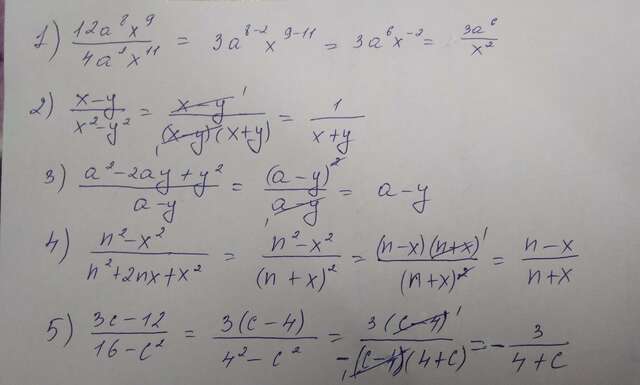 1) 12a⁸x⁹ / 4a²x¹¹ = 3a⁸⁻²x⁹⁻¹¹ = 3a⁶x⁻² = 3a⁶ / x²
2) x-y / x²-y² = x-y ¹ / ₁(x-y)(x+y) = 1 / x+y
3) a²-2ay+y² / a-y = (a-y)² / ₁a-y = a-y
4) n²-x² / n²+2nx+x² = n²-x² / (n+x)² = (n-x)(n+x)¹ / (n+x)² = n-x / n+x
5) 3c-12 / 16-c² = 3(c-4) / 4²-c² = 3(c-4)¹ / -₁(c-4)(4+c) = - 3 / 4+c